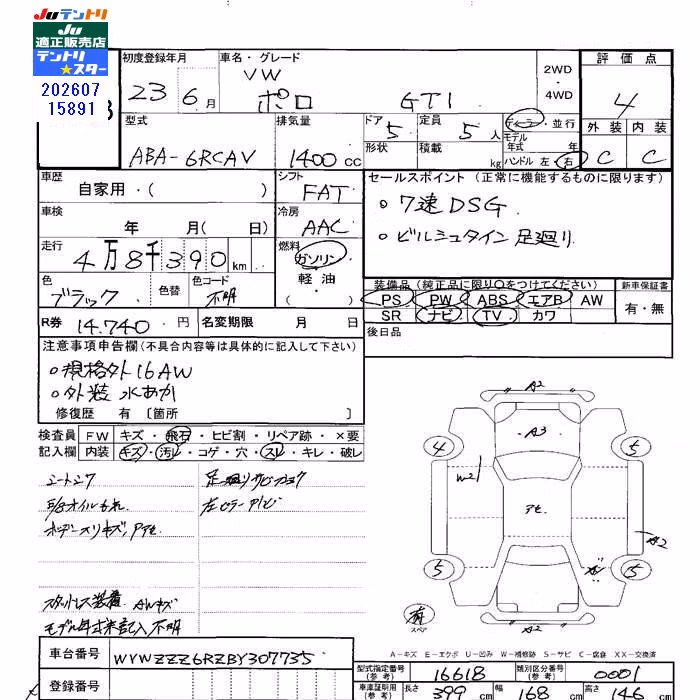 Juテントリ
Ju
適正販売店
テントリ
★スター
202607
15891
3
初度登録年月
23 6月
車名・グレード
VW
ポロ GTI
2WD
・
4WD
評価点
4
外装 内装
C C
型式
ABA-6RCAV
排気量
1400cc
ドア 5
形状
定員 5人
積載 kg
ディーラー・並行
モデル
年式 年
ハンドル 左・右
車歴
自家用・( )
シフト
FAT
セールスポイント(正常に機能するものに限ります)
○ 7速DSG
○ ビルシュタイン 足廻り
車検
年 月(日)
冷房
AAC
走行
4万8千390km
燃料
ガソリン
軽油
( )
色
ブラック
色替
色コード
不明
装備品(純正品に限り○をつけてください)
PS PW ABS エアB AW
SR ナビ TV カワ
新車保証書
有・無
R券 14,740円
名変期限 月 日
後日品
注意事項申告欄(不具合内容等は具体的に記入して下さい)
○規格外16AW
○外装 水あか
修復歴 有 〔箇所 〕
検査員
記入欄
FW キズ・飛石・ヒビ割・リペア跡・×要
内装 キズ・汚レ・コゲ・穴・スレ・キレ・破レ
E/Gオイルもれ
スタットレス装着 AWキズ
モデル年式未記入 不明
A2
A3
4
5
W2
アセ
A2
5
5
有
スペア
A2
A-キズ E-エクボ U-凹み W-補修跡 S-サビ C-腐食 XX-交換済
車台番号 WVWZZZ6RZBY307735
登録番号
型式指定番号
(参考)
16618
類別区分番号
(参考)
0001
車庫証明用
(参考)
長さ 399cm 幅 168cm 高さ 146cm